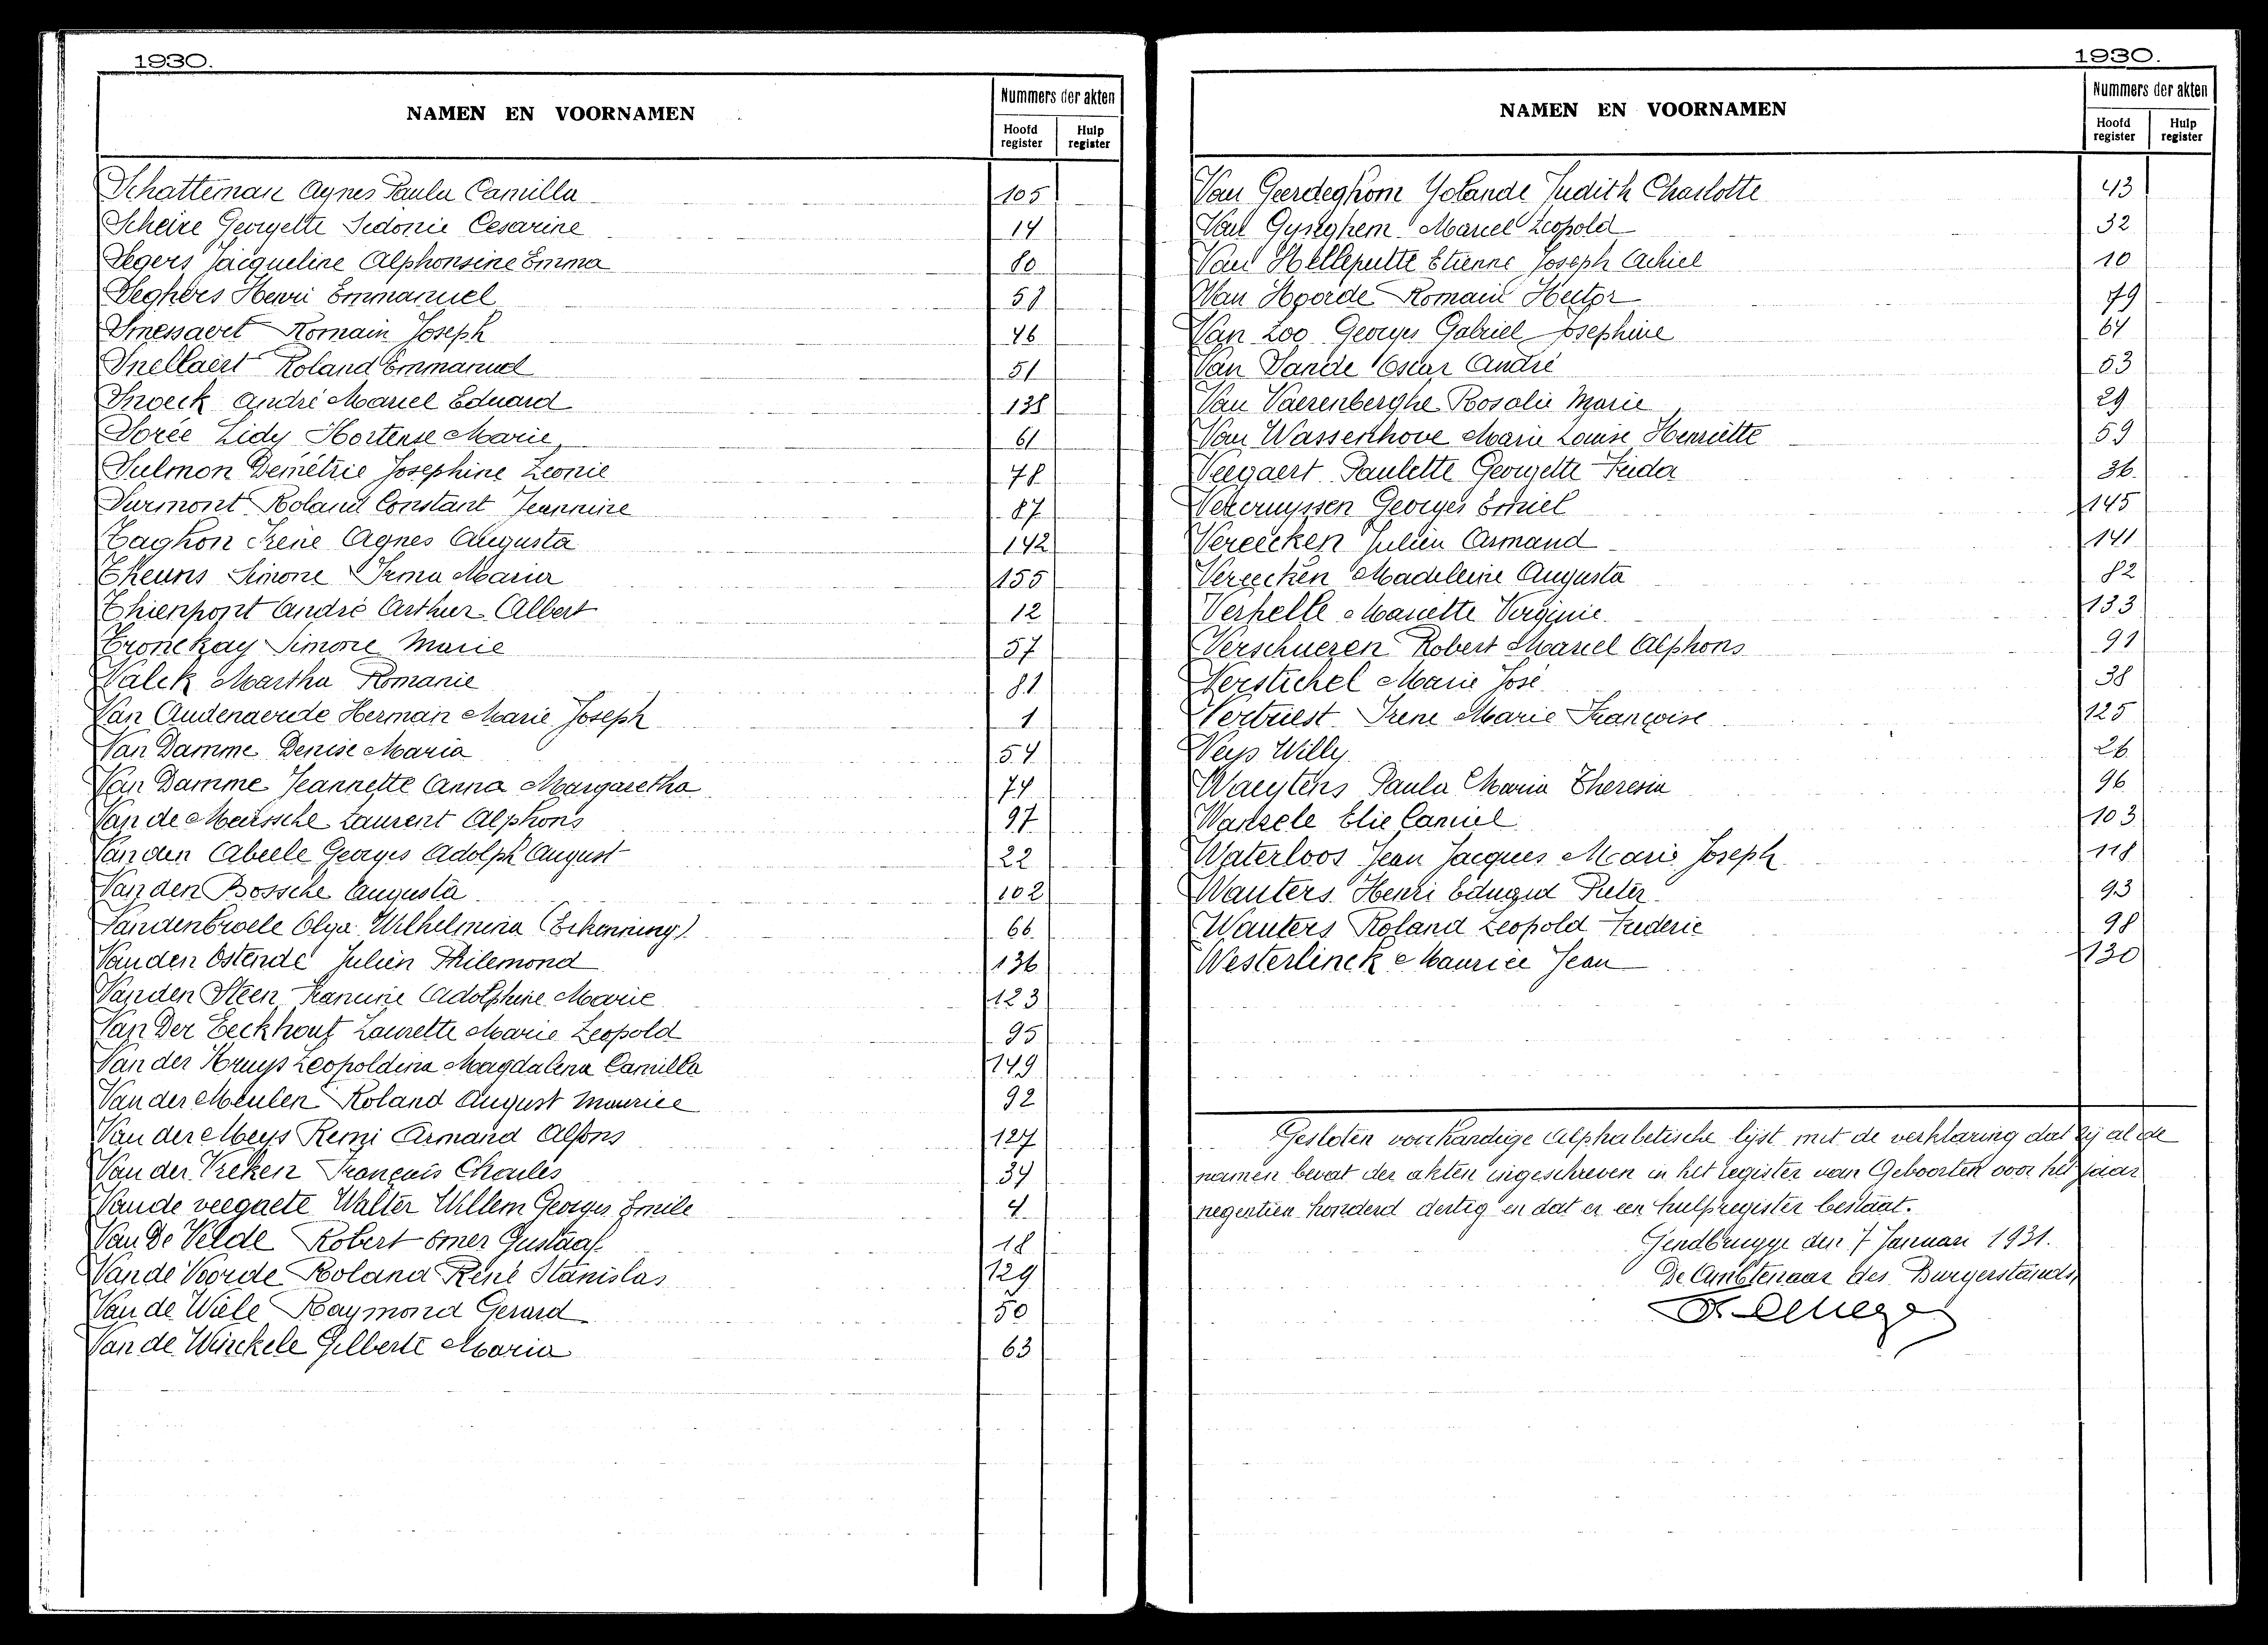 1930.
NAMEN EN VOORNAMEN
Nummers der akten
Hoofd register
Hulp register
Schatteman Agnes Paula Camilla 105
Scheire Georgette Sidonie Cesarine 14
Segers Jacqueline Alphonsine Emma 80
Seghers Henri Emmanuel
Smessaert Romain Joseph 46
Snellaert Roland Emmanuel 51
Snoeck André Marcel Eduard 138
Sorée Lidy Hortense Marie 61
Sulmon Demétrie Josephine Leonie 78
Surmont Roland Constant Jeannine 87
Taghon Irene Agnes Augusta 142
Theuns Simone Irma Maria 155
Thienpont André Arthur Albert 12
Tronckay Simone Marie 57
Valck Martha Romanie 81
Van Audenaerde Herman Marie Joseph 1
Van Damme Denise Maria 54
Van Damme Jeannette Anna Margaretha 74
Van de Meerssche Laurent Alphons 97
Van den Abeele Georges Adolph August 22
Van den Bossche Augusta 102
Vandenbroele Olga Wilhelmina (Erkenning) 66
Van den Ostende Julien Philemond 136
Van den Steen Adolphine Marie 123
Van Der Eeckhout Laurette Marie Leopold 95
Van der Kruys Leopoldina Magdalena Camilla 149
Van der Meulen Roland August Maurice 92
Van der Meys Remi Armand Alfons 127
Van der Vreken François Charles 34
Vande veegaete Walter Willem Georges Emile 4
Van De Velde Robert Omer Gustaaf 18
Van de Voorde Roland René Stanislas 129
Van de Wiele Raymond Gerard 50
Van de Winckele Gilberte Maria 63
1930.
NAMEN EN VOORNAMEN
Nummers der akten
Hoofd register
Hulp register
Van Geerdeghom Yolande Judith Charlotte 43
Van Gyseghem Marcel Leopold 32
Van Helleputte Etienne Joseph Achiel 10
Van Hoorde Romain Hector 79
Van Loo Georges Gabriel Josephine 64
Van Sande Oscar André 53
Van Vaerenberghe Rosalie Marie 29
Van Wassenhove Marie Louise Henriette 59
Veegaert Paulette Georgette Frida 36
Vekemyssen Georges Emiel 145
Vereecken Julien Armand 141
Vereecken Madeleine Augusta 82
Verhelle Mariette Virginie 133
Verschueren Robert Marcel Alphons 91
Verstichel Marie José 38
Vertriest Irene Marie Françoise 125
Veys Willy 26
Waeytens Paula Maria Theresia 96
Wanzele Elie Camiel 103
Waterloos Jean Jacques Marie Joseph 118
Wauters Henri Eduard Pieter 93
Wauters Roland Leopold Frederic 98
Westerlinck Maurice Jean 130
Gesloten voorhandige Alphabetische lijst met de verklaring dat zij al de
namen bevat der akten ingeschreven in het register van Geboorten voor het jaar
negentien honderd dertig en dat er een hulpregister bestaat.
Gendbrugge den 7 Januari 1931.
De Ambtenaar des Burgerstands,